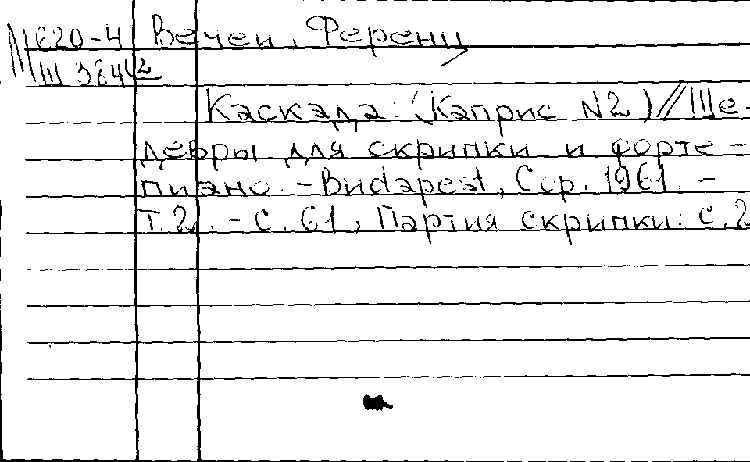 М620-4 Вечеи, Ференц
Ш 364/2
Каскада: (Каприс N2) // Ше-
девры для скрипки и форте-
пиано. - Budapest, Cop. 1961. -
Т.2. - С. 61, Партия скрипки: с. 2